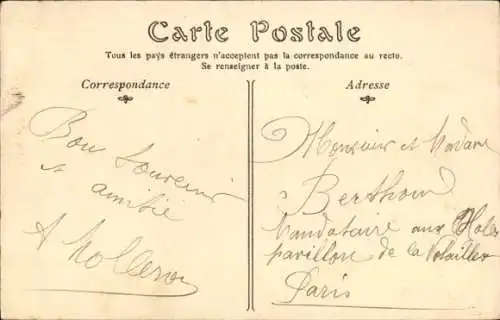 Carte Postale
Tous les pays étrangers n'acceptent pas la correspondance au recto.
Se renseigner à la poste.
Correspondance
Adresse
Bon souvenir
et amitié
Monsieur et Madame
Berthoud
Mandataire aux Halles
pavillon de la Volailles
Paris